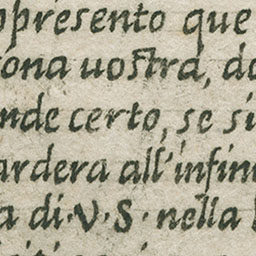 ppresento que
ona uostra, do
nde certo, se si
ardera all'infin
a di·V·S· nella